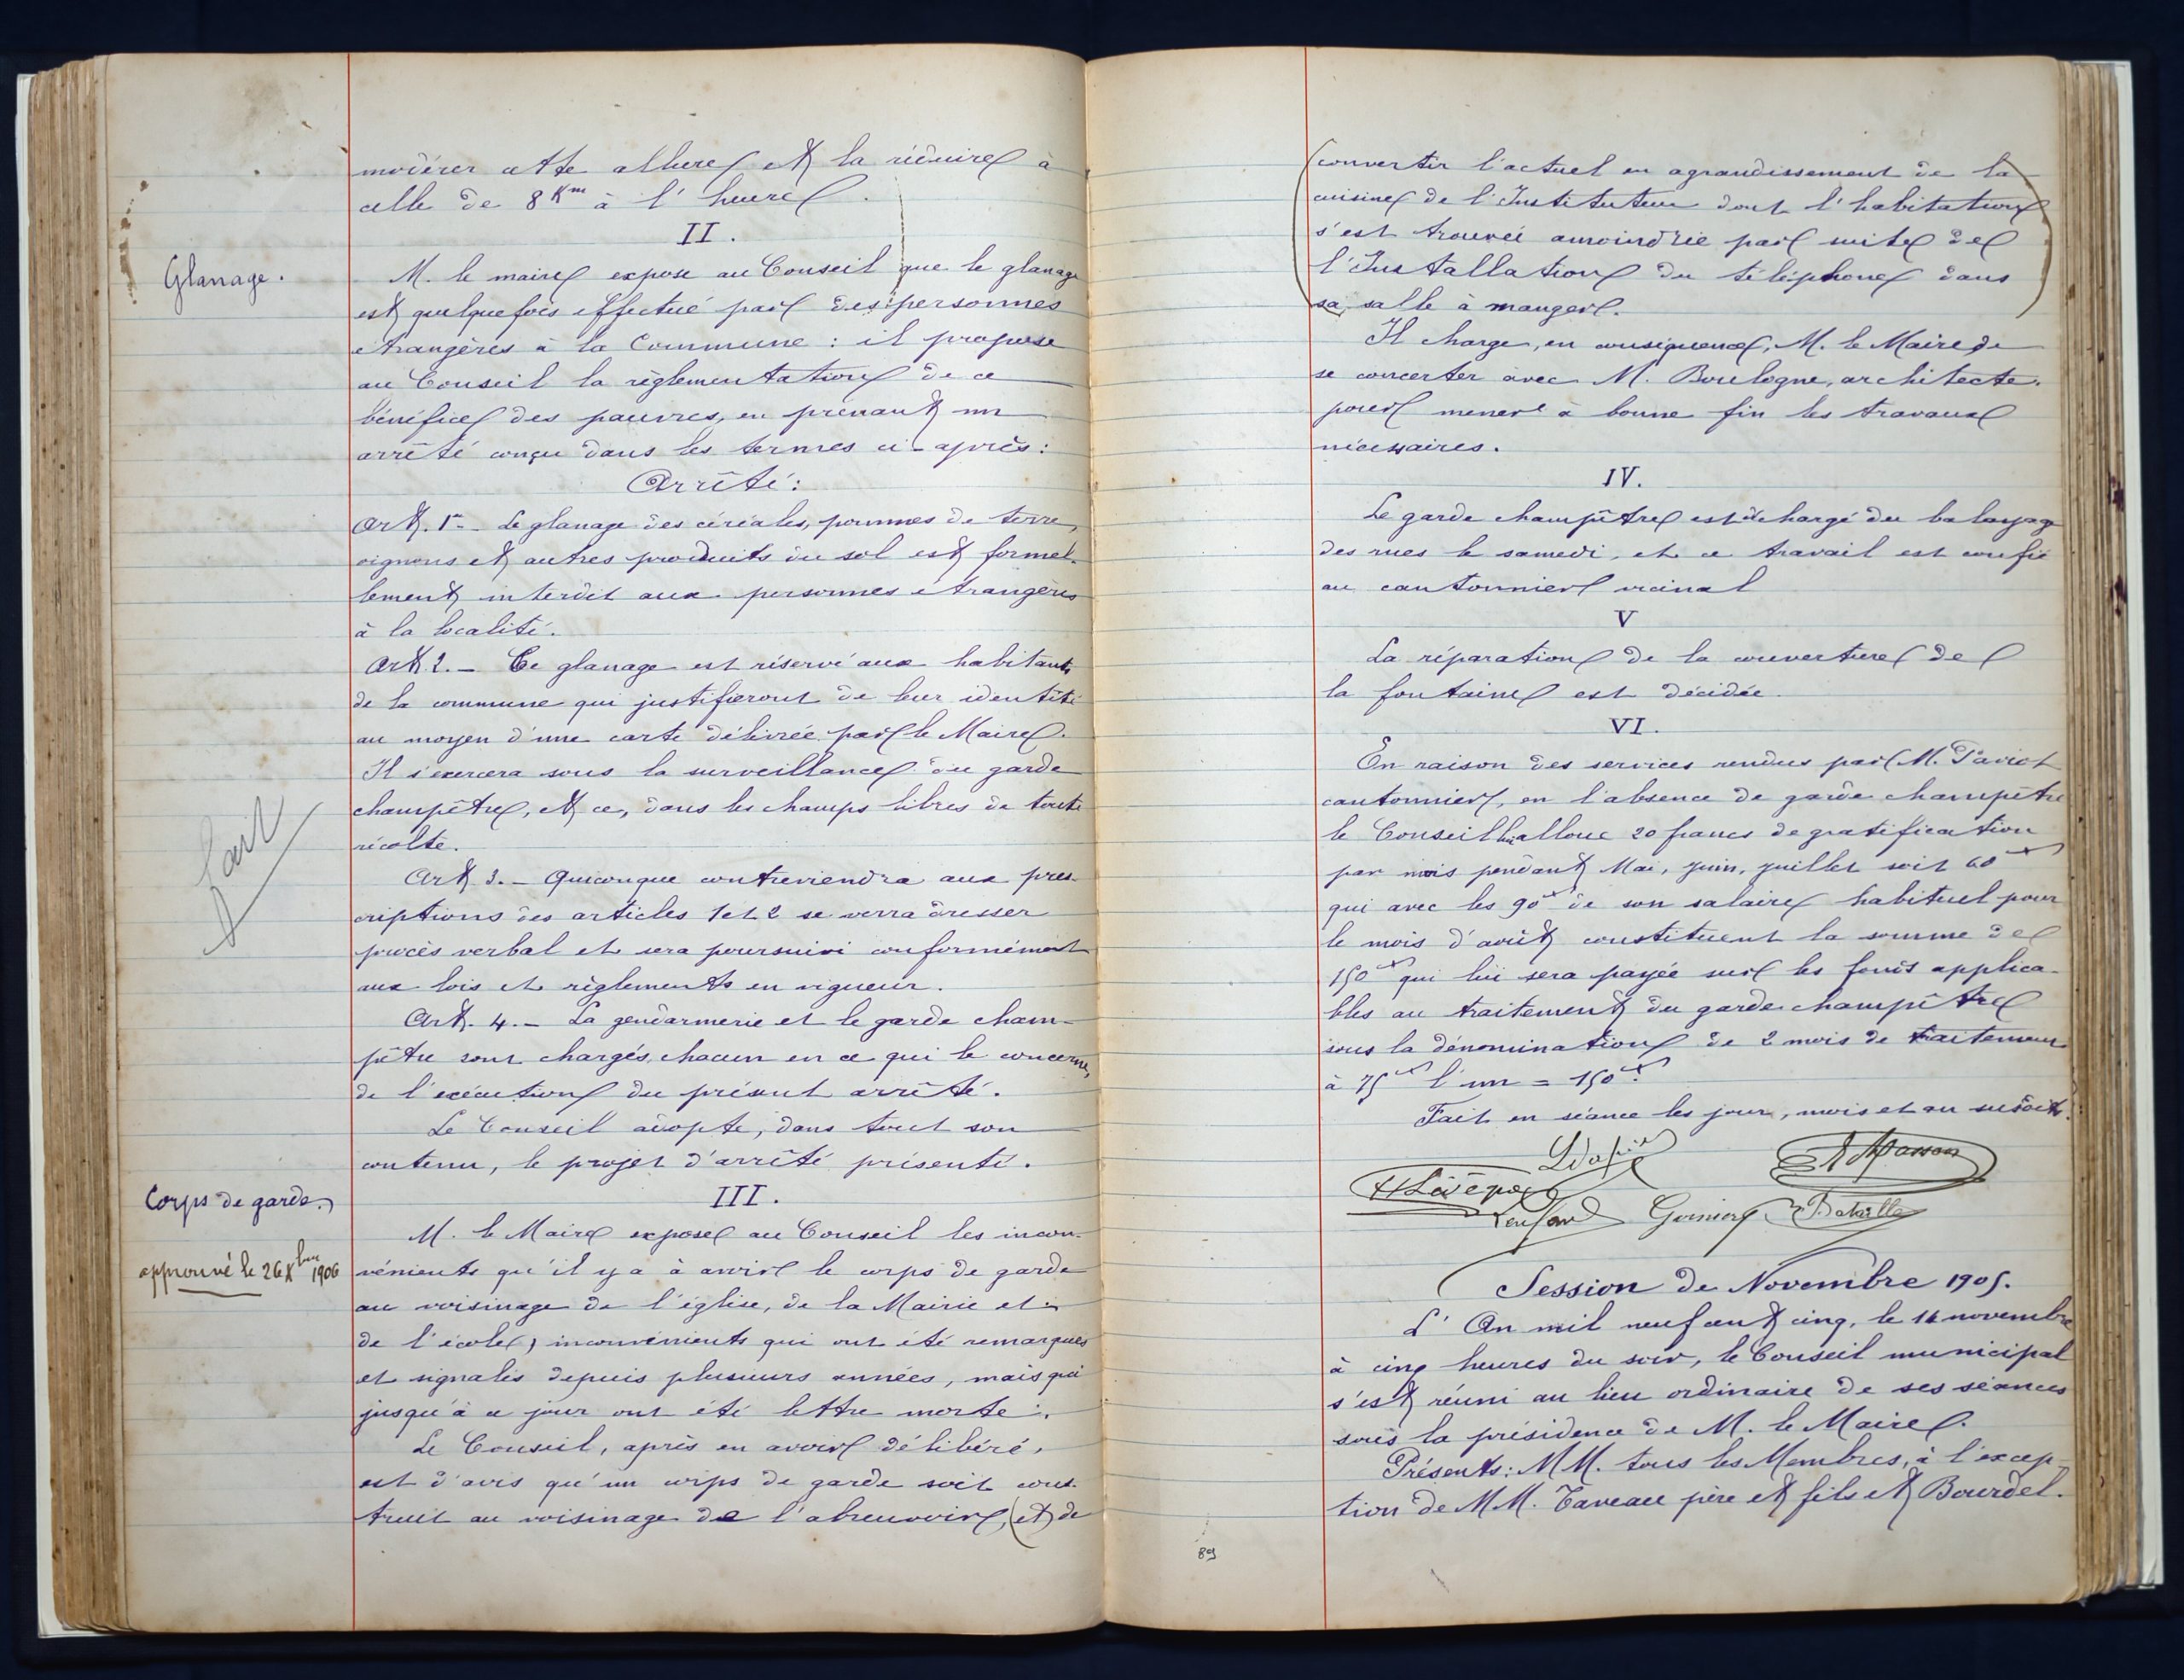 modérer cette allure et la réduire à
celle de 8 Km à l'heure.
II.
Glanage.
M. le maire expose au Conseil que le glanage
est quelquefois effectué par des personnes
étrangères à la Commune : il propose
au Conseil la règlementation de ce
bénéfice des pauvres, en prenant un
arrêté conçu dans les termes ci-après :
Arrêté :
Art. 1er - Le glanage des céréales, pommes de terre,
oignons et autres produits du sol est formel-
lement interdit aux personnes étrangères
à la localité.
Art 2. - Ce glanage est réservé aux habitants
de la commune qui justifieront de leur identité
au moyen d'une carte délivrée par le Maire.
Il s'exercera sous la surveillance du garde
champêtre, et ce, dans les champs libres de toute
récolte.
fait
Art 3. - Quiconque contreviendra aux pres-
criptions des articles 1 et 2 se verra dresser
procès verbal et sera poursuivi conformément
aux lois et règlements en vigueur.
Art. 4. - La gendarmerie et le garde cham-
pêtre sont chargés, chacun en ce qui le concerne,
de l'exécution du présent arrêté.
Le Conseil adopte, dans tout son
contenu, le projet d'arrêté présenté.
III.
Corps de garde.
approuvé le 26 Xbre 1906
M. le Maire expose au Conseil les incon-
vénients qu'il y a à avoir le corps de garde
au voisinage de l'église, de la Mairie et
de l'école, inconvénients qui ont été remarqués
et signalés depuis plusieurs années, mais qui
jusqu'à ce jour ont été lettre morte.
Le Conseil, après en avoir délibéré,
est d'avis qu'un corps de garde soit cons-
truit au voisinage de l'abreuvoir, (et de
convertir l'actuel en agrandissement de la
cuisine de l'Instituteur dont l'habitation
s'est trouvée amoindrie par suite de
l'Installation du téléphone dans
sa salle à manger.)
Il charge, en conséquence, M. le Maire de
se concerter avec M. Boulogne, architecte.
pour mener à bonne fin les travaux
nécessaires.
IV.
Le garde champêtre est déchargé du balayage
des rues le samedi, et ce travail est confié
au cantonnier vicinal
V
La réparation de la couverture de
la fontaine est décidée.
VI.
En raison des services rendus par M. Paviot
cantonnier, en l'absence de garde champêtre
le Conseil lui alloue 20 francs de gratification
par mois pendant Mai, Juin, Juillet soit 60 f
qui avec les 90 f de son salaire habituel pour
le mois d'août constituent la somme de
150 f qui lui sera payée sur les fonds applica-
bles au traitement du garde champêtre
sous la dénomination de 2 mois de traitement
à 75 f l'un = 150 f.
Fait en séance les jour, mois et an susdits.
Masson
Bataille
Session de Novembre 1905.
L'An mil neuf cent cinq, le 14 novembre
à cinq heures du soir, le Conseil municipal
s'est réuni au lieu ordinaire de ses séances
sous la présidence de M. le Maire.
Présents : MM. tous les Membres, à l'excep-
tion de MM. Taveau père et fils et Bourdel.
89